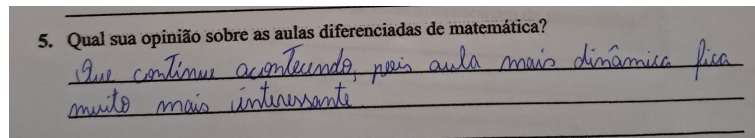 5. Qual sua opinião sobre as aulas diferenciadas de matemática?
Que continue acontecendo, pois aula mais dinâmica fica
muito mais interessante